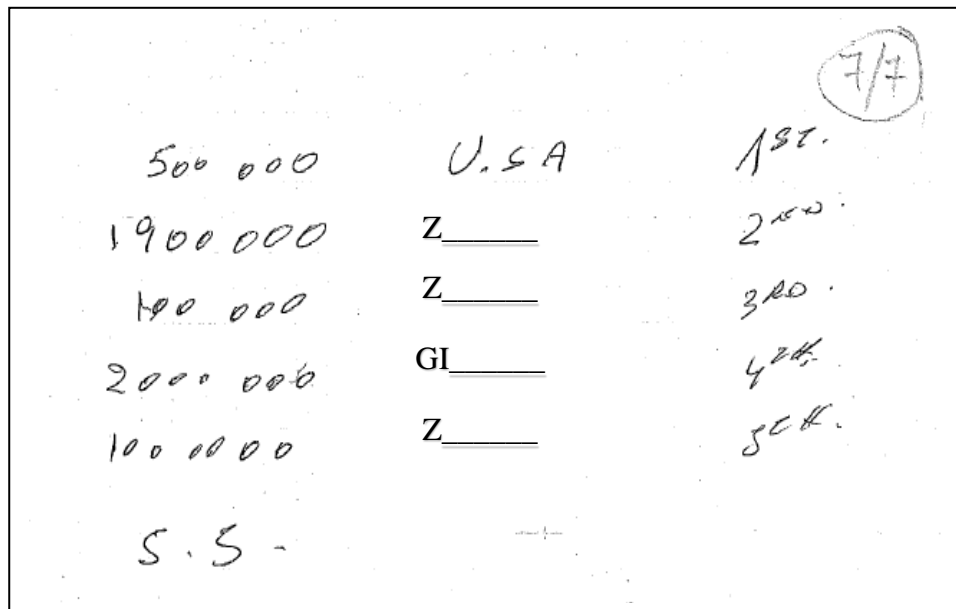 7/7
500 000 U.S A 1ST.
1900 000 Z______ 2ND.
100 000 Z______ 3RD.
2000 000 GI______ 4TH.
100 000 Z______ 5TH.
S.S-